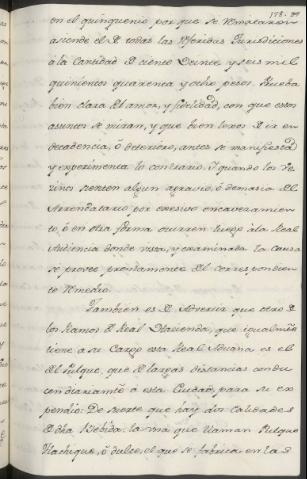 158.
en el quinquenio, por que se Remataron
asciende el de todas las referidas Jurisdiciones
à la Cantidad de ciento veinte, y seis mil
quinientos quarenta y ocho pesos. Prueba
bien clara del amor, y fidelidad, con que estos
asuntos se miran, y que bien lexos de ir en
decadencia, ó deterioro, antes se manifiesta,
y experimenta lo contrario. Y quando los Ve-
zinos sienten algun agravio, ó demasia del
Arrendatario por excesivo encavezamien-
to, ó en otra forma ocurren luego à la Real
Audiencia donde vista, y examinada la causa
se provee prontamente del correspondien-
te Remedio.
Tambien es de Advertir que otro de
los Ramos de Real Hacienda, que igualmte
tiene a su Cargo esta Real Aduana es el
del Pulque, que de largas distancias condu
cen diariamte à esta Ciudad, para su ex-
pendio: De suerte que hay dos calidades
de dha Bebida: la una que llaman Pulque
tlachique, ó dulce, el que se fabrica en las